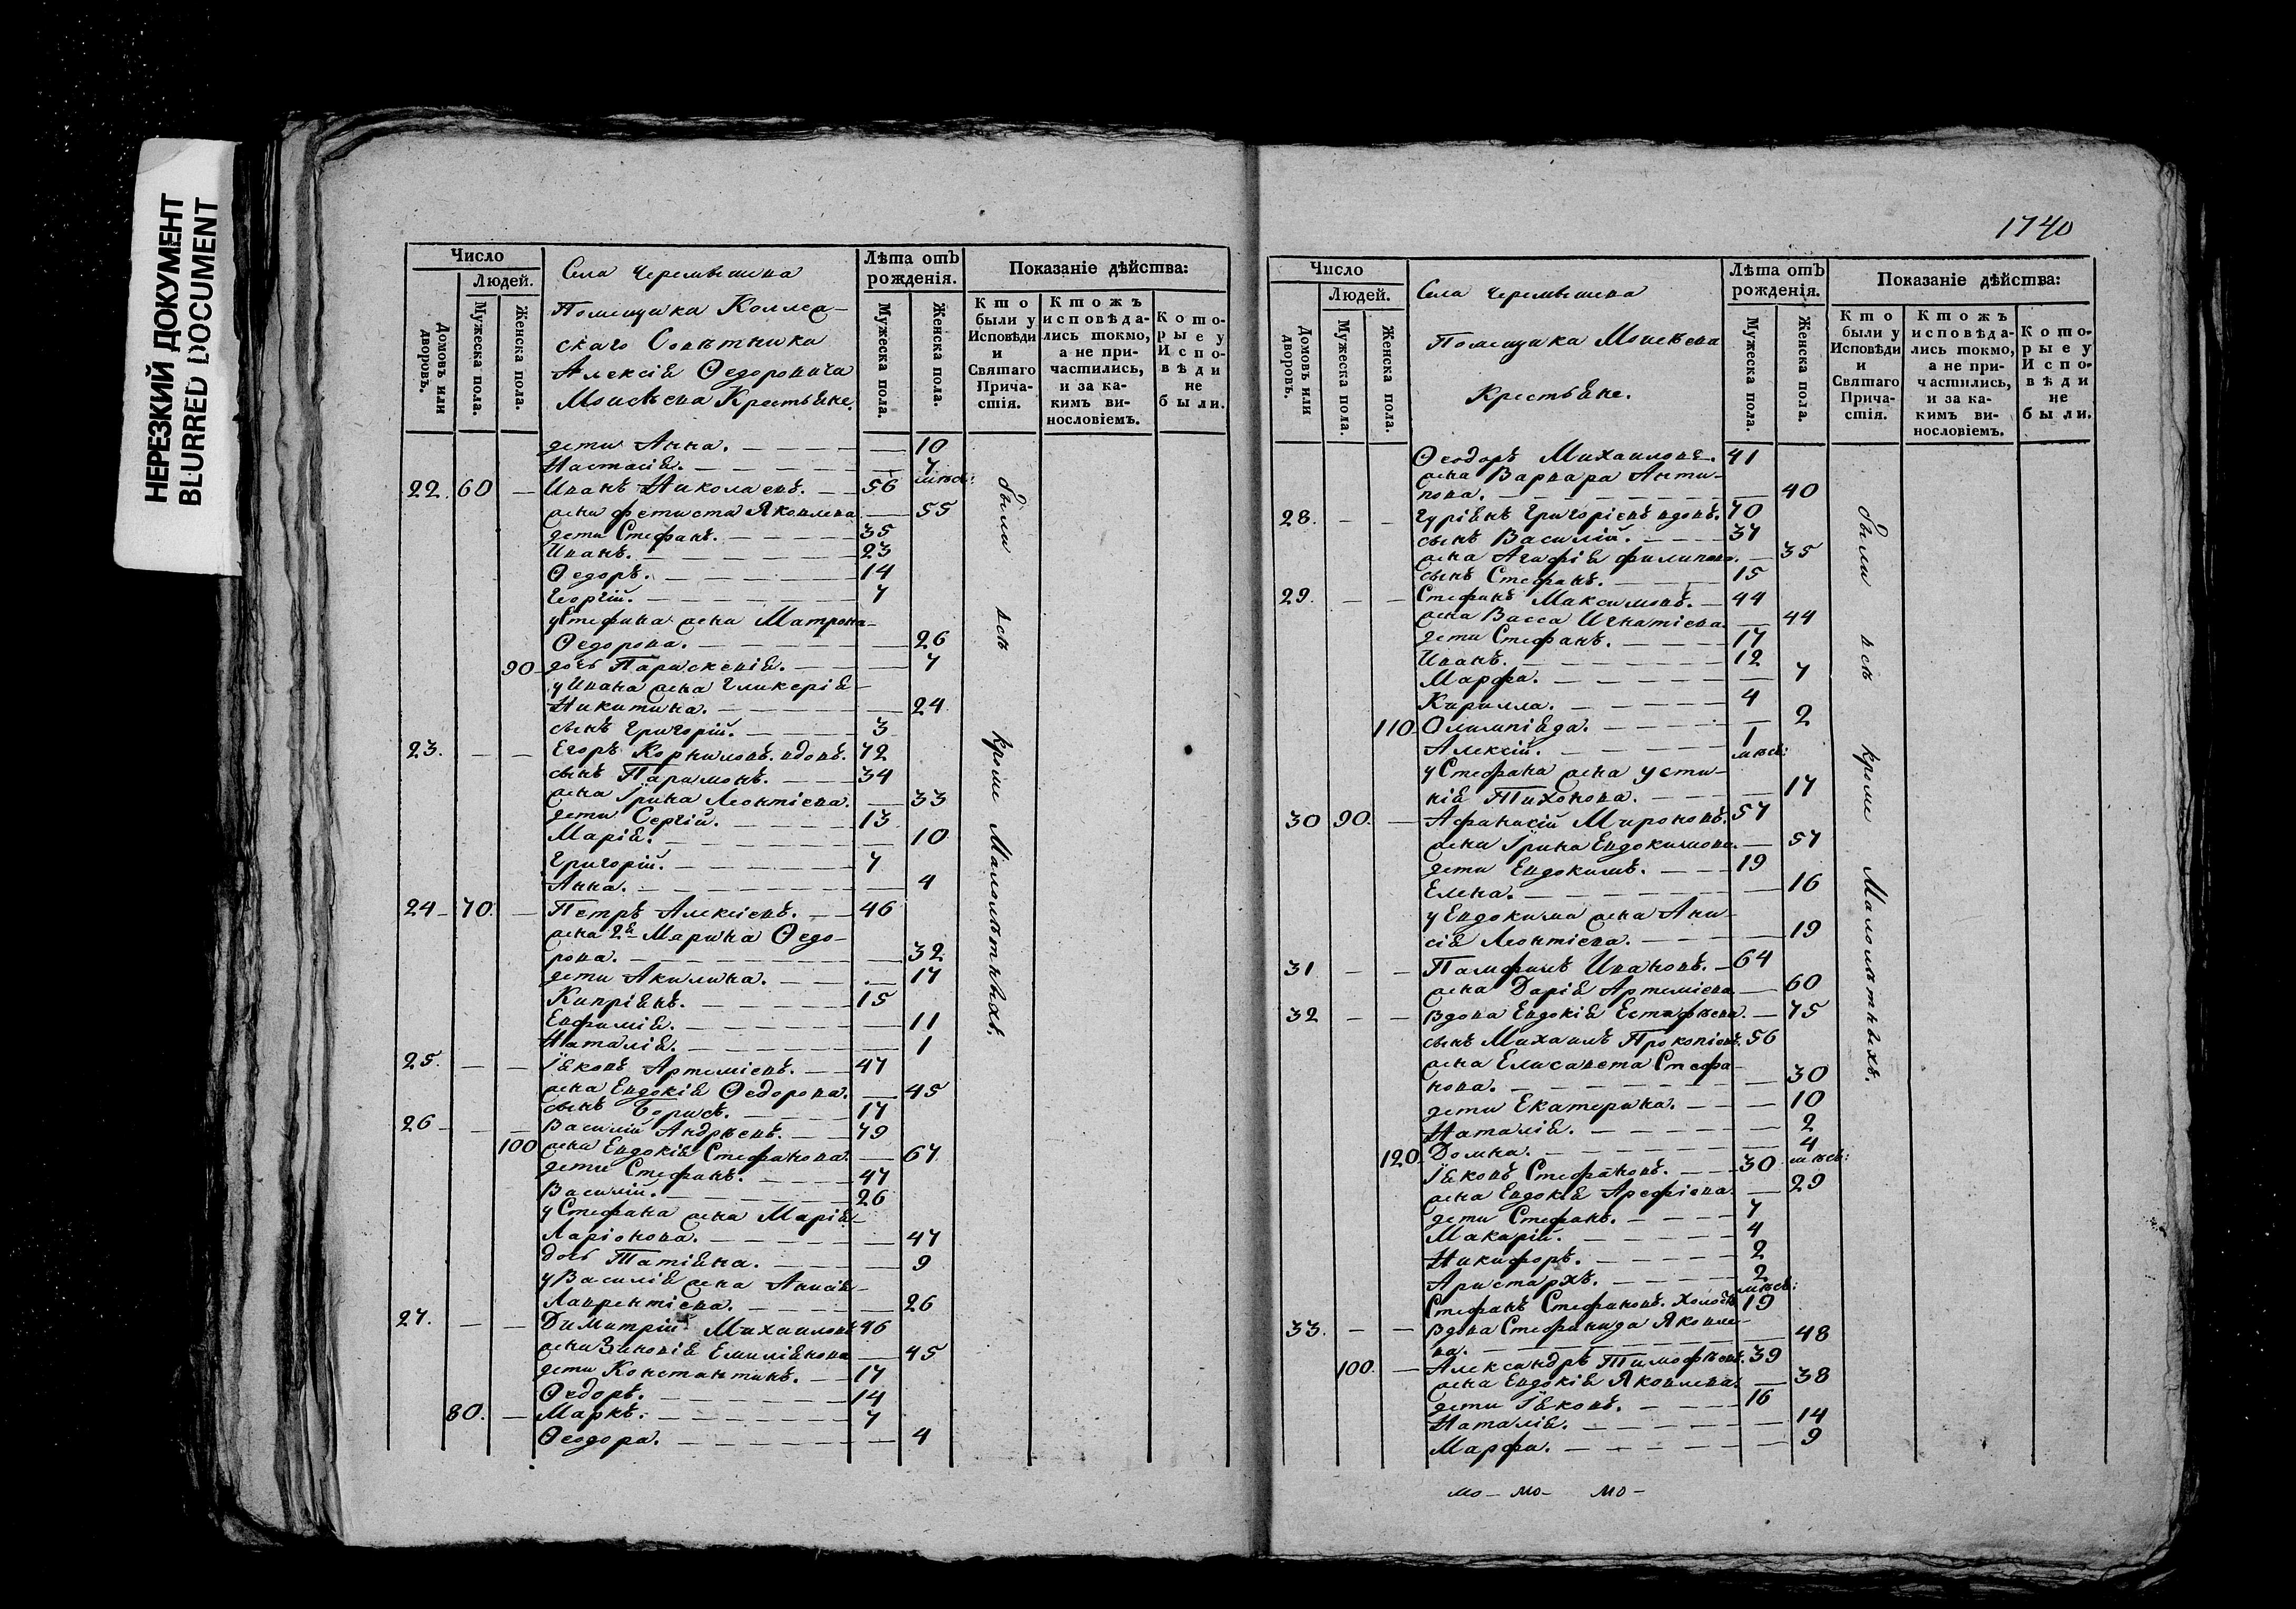 НЕРЕЗКИЙ ДОКУМЕНТ
BLURRED DOCUMENT
Число
Людей.
Домовъ или дворовъ.
Мужеска пола.
Женска пола.
Села Черемышева
Помещика Коллеа-
скаго Советника
Алексія Ѳедоровича
Моисѣева Крестьяне.
Лѣта отъ рожденія.
Мужеска пола.
Женска пола.
Показаніе дѣйства:
Кто были у Исповѣди и Святаго Причастія.
Ктожъ исповѣдались токмо, а не причастились, и за какимъ винословіемъ.
Которые у Исповѣди не были.
дети Анна. 10
Настасія. 7 мѣсѣ:
22. 60 Иванъ Николаевъ. 56
жена Фетиста Яковлева 55
дети Стефанъ. 35
Иванъ. 23
Ѳедоръ. 14
Георгій. 7
у Стефана жена Матрона
Ѳедорова. 26
90 дочь Параскевія. 7
у Ивана жена Гликерія
Никитина. 24
сынъ Григорій. 3
23. Егоръ Корниловъ. вдовъ. 72
сынъ Парамонъ. 34
жена Ірина Леонтіева. 33
дети Сергій. 13
Марія. 10
Григорій. 7
Анна. 4
24 70. Петръ Алексіевъ. 46
жена 2я Марина Ѳедо-
рова. 32
дети Акилина. 17
Кипріянъ. 15
Евфимія. 11
Наталія. 1
25. Іяковъ Артеміевъ. 47
жена Евдокія Ѳедорова. 45
сынъ Борисъ. 17
26 Василій Андреевъ. 79
100 жена Евдокія Стефанова. 67
дети Стефанъ. 47
Василій. 26
у Стефана жена Марія
Ларіонова. 47
дочь Татіяна. 9
у Василія жена Анисія
Лаврентіева. 26
27. Димитрій Михаиловъ 46
жена Зиновія Емиліянова 45
дети Константинъ. 17
Ѳедоръ. 14
80. Маркъ. 7
Ѳеодора. 4
были всѣ кроме Малолѣтныхъ.
1740
Число
Людей.
Домовъ или дворовъ.
Мужеска пола.
Женска пола.
Села Черемышева
Помещика Моисѣева
Крестьяне.
Лѣта отъ рожденія.
Мужеска пола.
Женска пола.
Показаніе дѣйства:
Кто были у Исповѣди и Святаго Причастія.
Ктожъ исповѣдались токмо, а не причастились, и за какимъ винословіемъ.
Которые у Исповѣди не были.
Ѳеодоръ Михаиловъ. 41
жена Варвара Анти-
пова. 40
28. Гуріянъ Григоріевъ вдовъ. 70
сынъ Василій. 37
жена Агафія Филипова. 35
сынъ Стефанъ. 15
29. Стефанъ Максимовъ. 44
жена Васса Игнатіева. 44
дети Стефанъ. 17
Иванъ. 12
Марфа. 7
Кирилла. 4
110 Олимпіяда. 2
Алексій. 1 мѣсѣ:
у Стефана жена Усти-
нія Тихонова. 17
30 90. Афанасій Мироновъ. 57
жена Ірина Евдокимова. 57
дети Евдокимъ. 19
Елена. 16
у Евдокима жена Ани-
сія Леонтіева. 19
31 Памфилъ Ивановъ. 64
жена Дарія Артеміева 60
32 Вдова Евдокія Естафѣева. 75
сынъ Михаилъ Прокопіевъ. 56
жена Елисавета Стефа-
нова. 30
дети Екатерина. 10
Наталія. 2
120. Домна. 4 мѣсѣ:
Іяковъ Стефановъ. 30
жена Евдокія Арефіева. 29
дети Стефанъ. 7
Макарій. 4
Никифоръ. 2
Аристархъ. 2 мѣсѣ:
Стефанъ Стефановъ. Холостъ 19
33. Вдова Стефанида Яковле-
ва. 48
100. Александръ Тимофѣевъ. 39
жена Евдокія Яковлева. 38
дети Іяковъ. 16
Наталія. 14
Марфа. 9
были всѣ кроме Малолѣтныхъ.
мо- мо- мо-